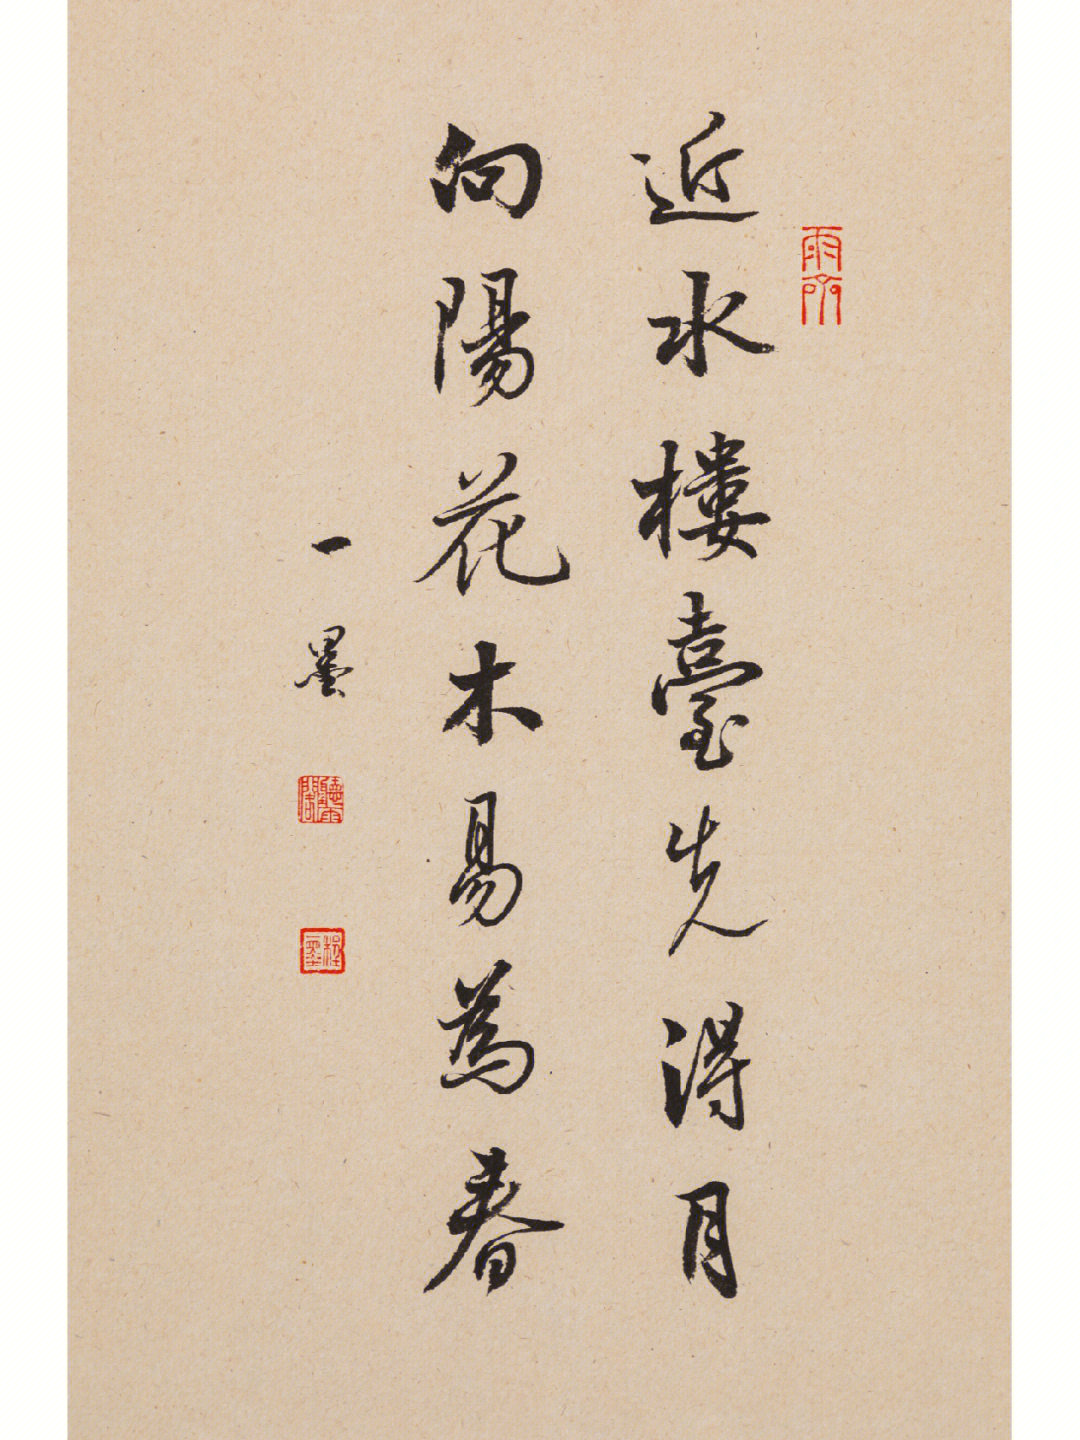 近水樓臺先得月
向陽花木易為春
一墨